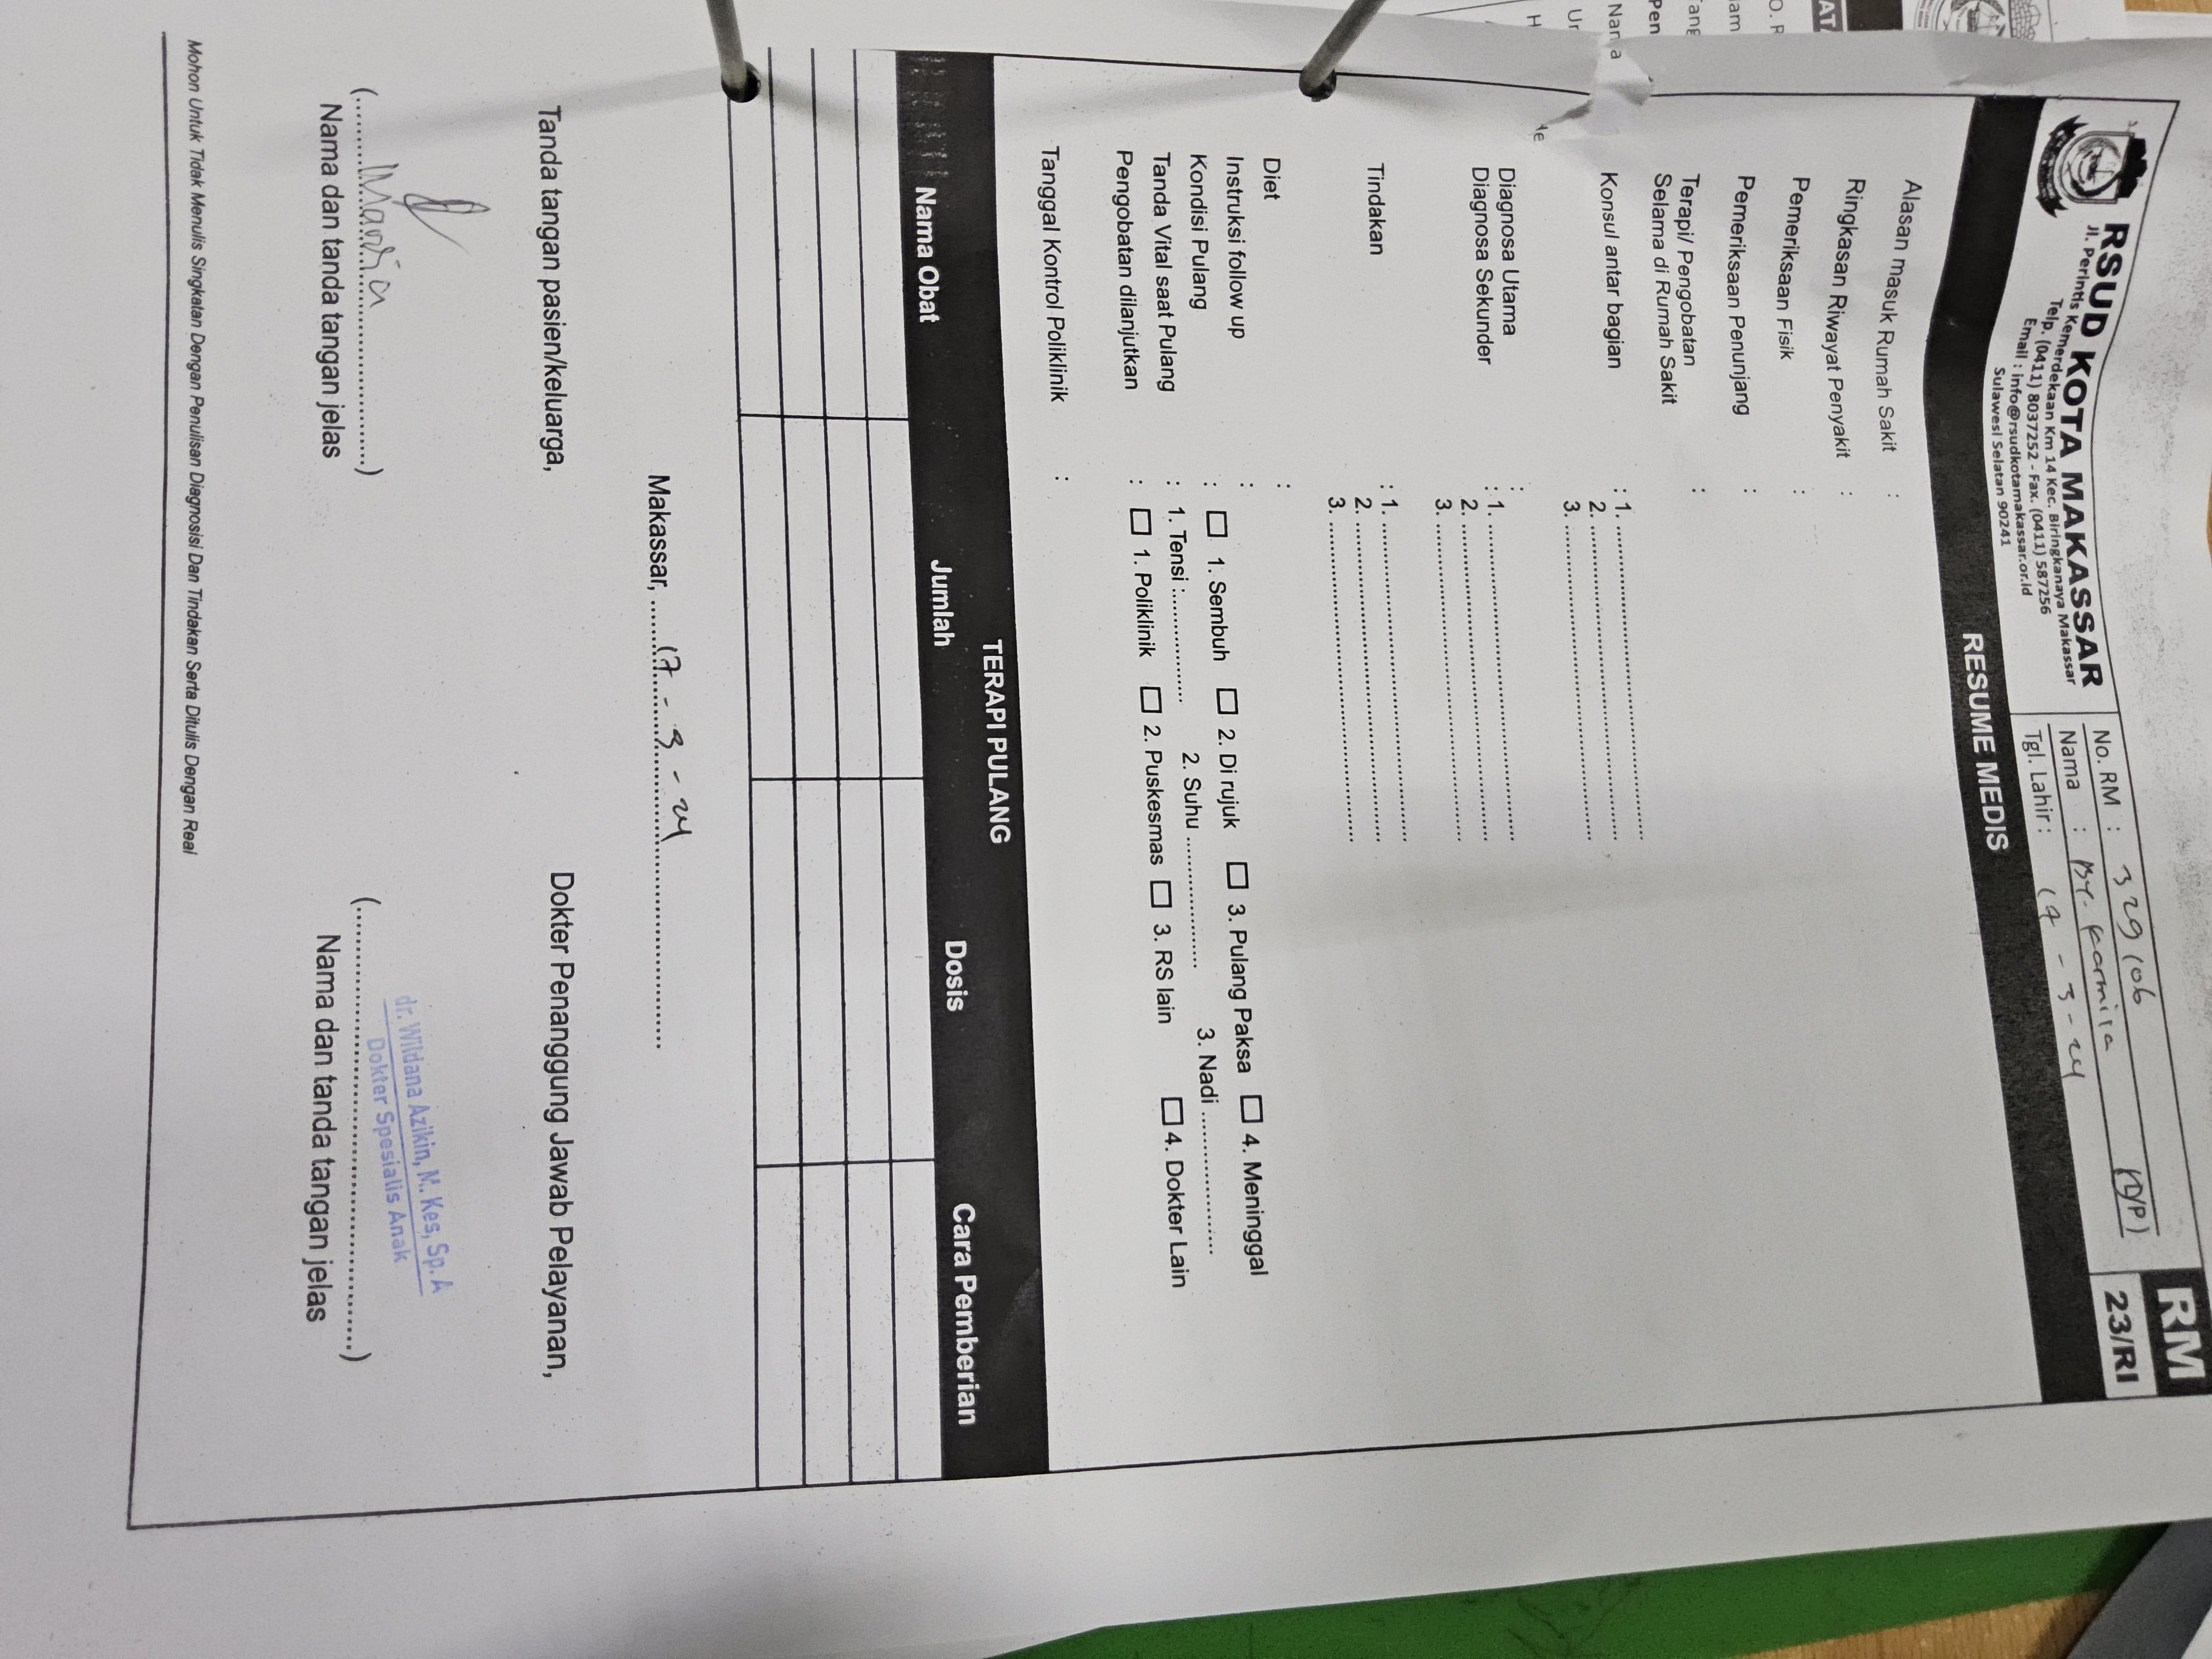 RSUD KOTA MAKASSAR
Jl. Perintis Kemerdekaan Km 14 Kec. Biringkanaya Makassar
Telp. (0411) 8037252 - Fax. (0411) 587256
Email : info@rsudkotamakassar.or.id
Sulawesi Selatan 90241
No. RM : 329106
Nama : By. Karmila (L/P)
Tgl. Lahir : 17 - 3 - 24
RM
23/RI
RESUME MEDIS
Alasan masuk Rumah Sakit :
Ringkasan Riwayat Penyakit :
Pemeriksaan Fisik :
Pemeriksaan Penunjang :
Terapi/ Pengobatan :
Selama di Rumah Sakit
Konsul antar bagian : 1. ....................
2. ....................
3. ....................
Diagnosa Utama :
Diagnosa Sekunder : 1. ....................
2. ....................
3. ....................
Tindakan : 1. ....................
2. ....................
3. ....................
Diet :
Instruksi follow up :
Kondisi Pulang : ☐ 1. Sembuh ☐ 2. Di rujuk ☐ 3. Pulang Paksa ☐ 4. Meninggal
Tanda Vital saat Pulang : 1. Tensi :.............. 2. Suhu .............. 3. Nadi ..............
Pengobatan dilanjutkan : ☐ 1. Poliklinik ☐ 2. Puskesmas ☐ 3. RS lain ☐ 4. Dokter Lain
Tanggal Kontrol Poliklinik :
TERAPI PULANG
Nama Obat Jumlah Dosis Cara Pemberian
Makassar, 17 - 3 - 24
Tanda tangan pasien/keluarga, Dokter Penanggung Jawab Pelayanan,
dr. Wildana Azikin, M. Kes, Sp. A
Dokter Spesialis Anak
(....................) (....................)
Nama dan tanda tangan jelas Nama dan tanda tangan jelas
Mohon Untuk Tidak Menulis Singkatan Dengan Penulisan Diagnosisi Dan Tindakan Serta Ditulis Dengan Real